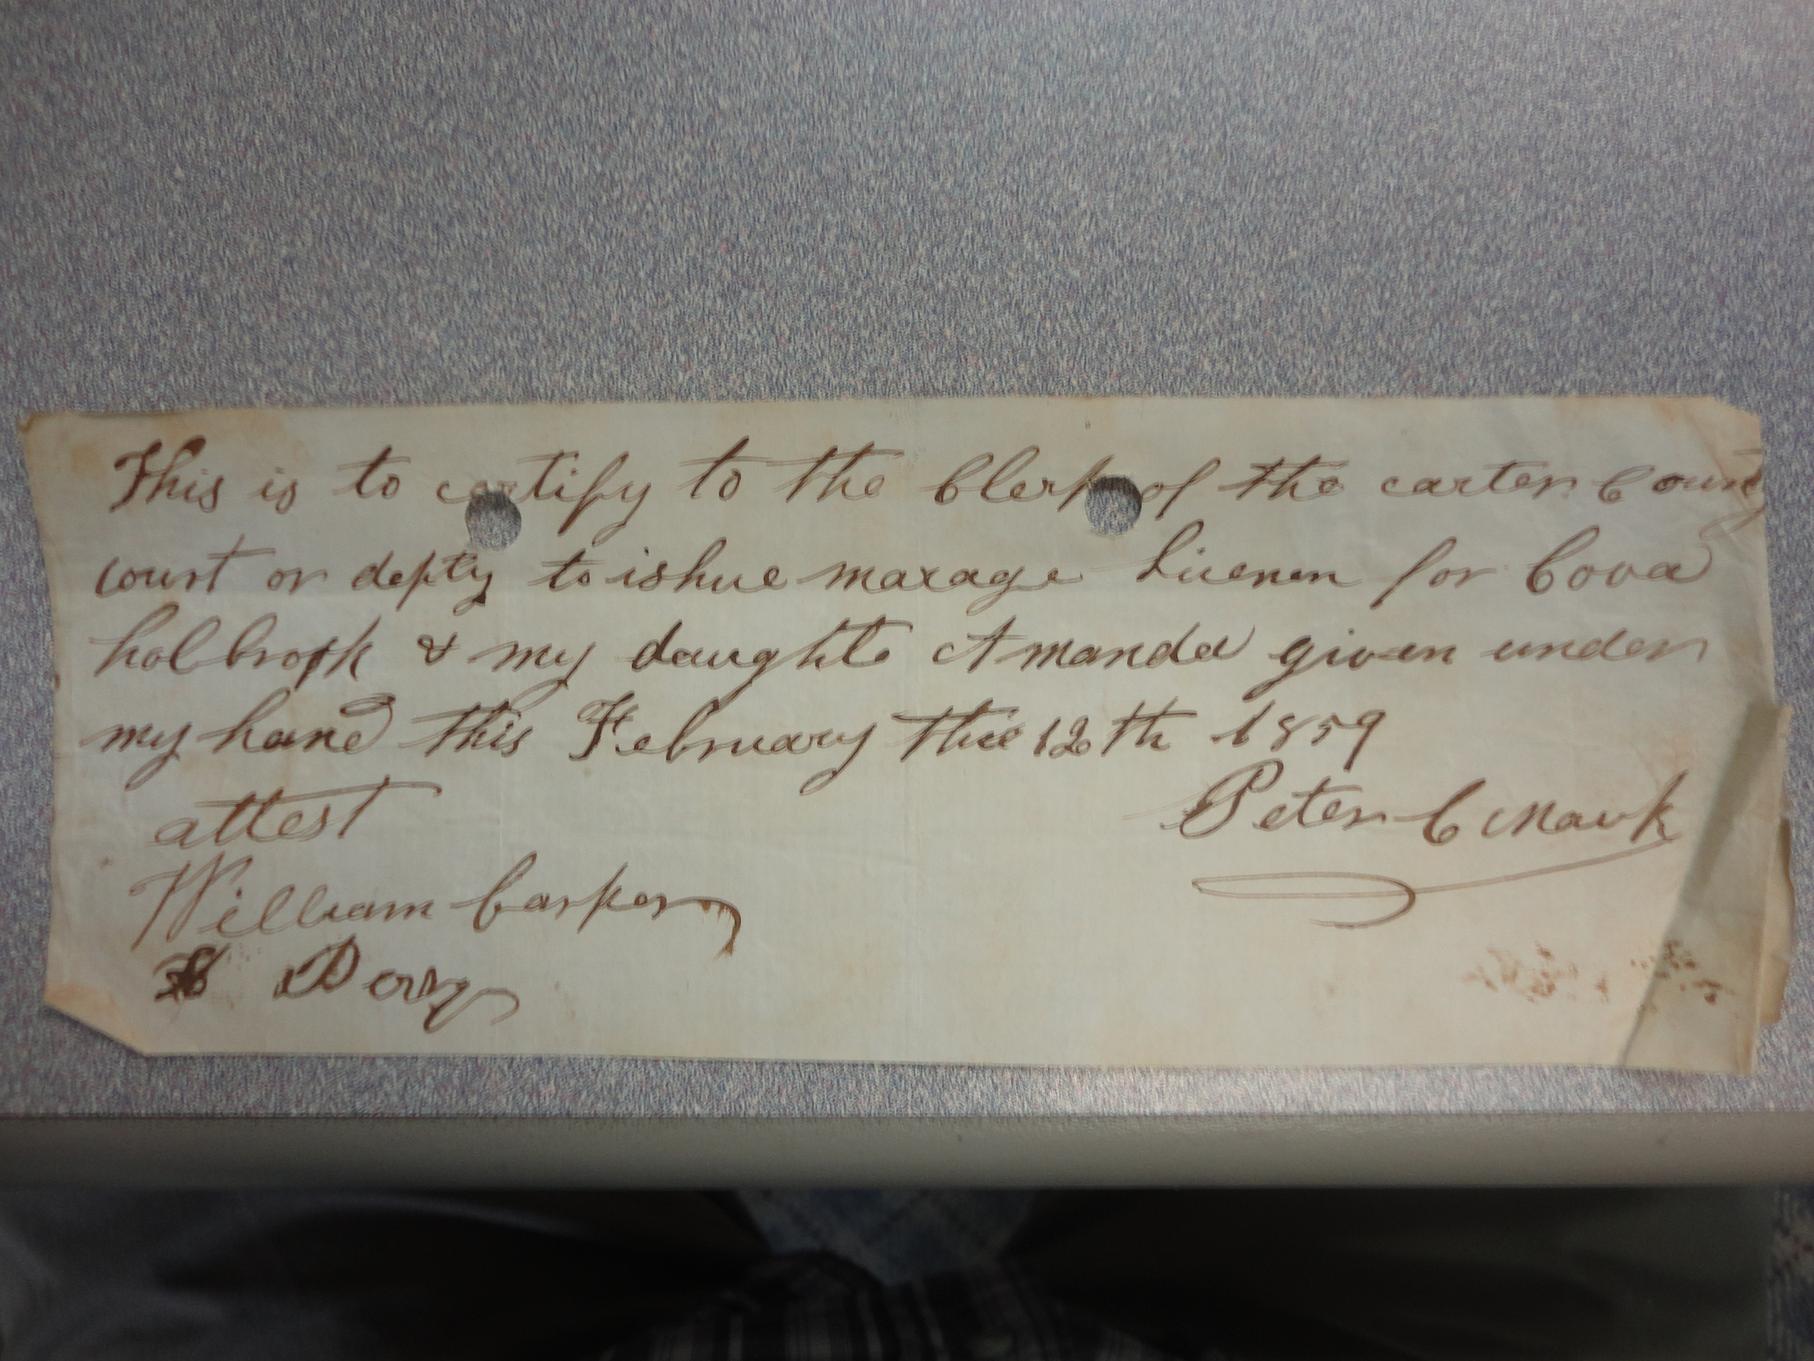 This is to certify to the Clerk of the carter County
court or depty to ishue marage Licenen for Cova
holbrook & my daughte Amanda given under
my hand this February the 12th 1859
attest
Peter C Mauk
William Casper